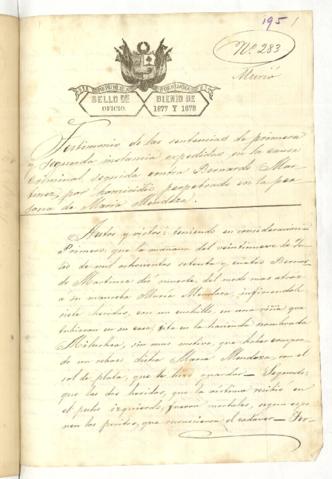 195
Nº 283
Murió
SELLO DE OFICIO.
BIENIO DE 1877 Y 1878
Testimonio de las sentencias de primera
y segunda instancia expedidas en la causa
criminal seguida contra Bernardo Mar-
tinez, por homicidio, perpetrado en la per-
sona de Maria Mendoza.
Autos y vistos: teniendo en consideracion:
Primero: que la mañana del veintinueve de
de mil ochocientos setenta y cuatro Bernar-
do Martinez dió muerte, del modo mas atroz
á su manceba Maria Mendoza, infiriendole
siete heridas, con un cuchillo, en una riña que
tubieron en su casa, sita en la hacienda nombrada
sin mas motivo, que
de un dicha Maria Mendoza, con el
sol de plata, que le hizo guardar. Segundo:
que las dos heridas, que la víctima recibió en
el pecho izquierdo, fueron mortales, segun expo-
nen los peritos, que reconocieron el cadaver. Ter-